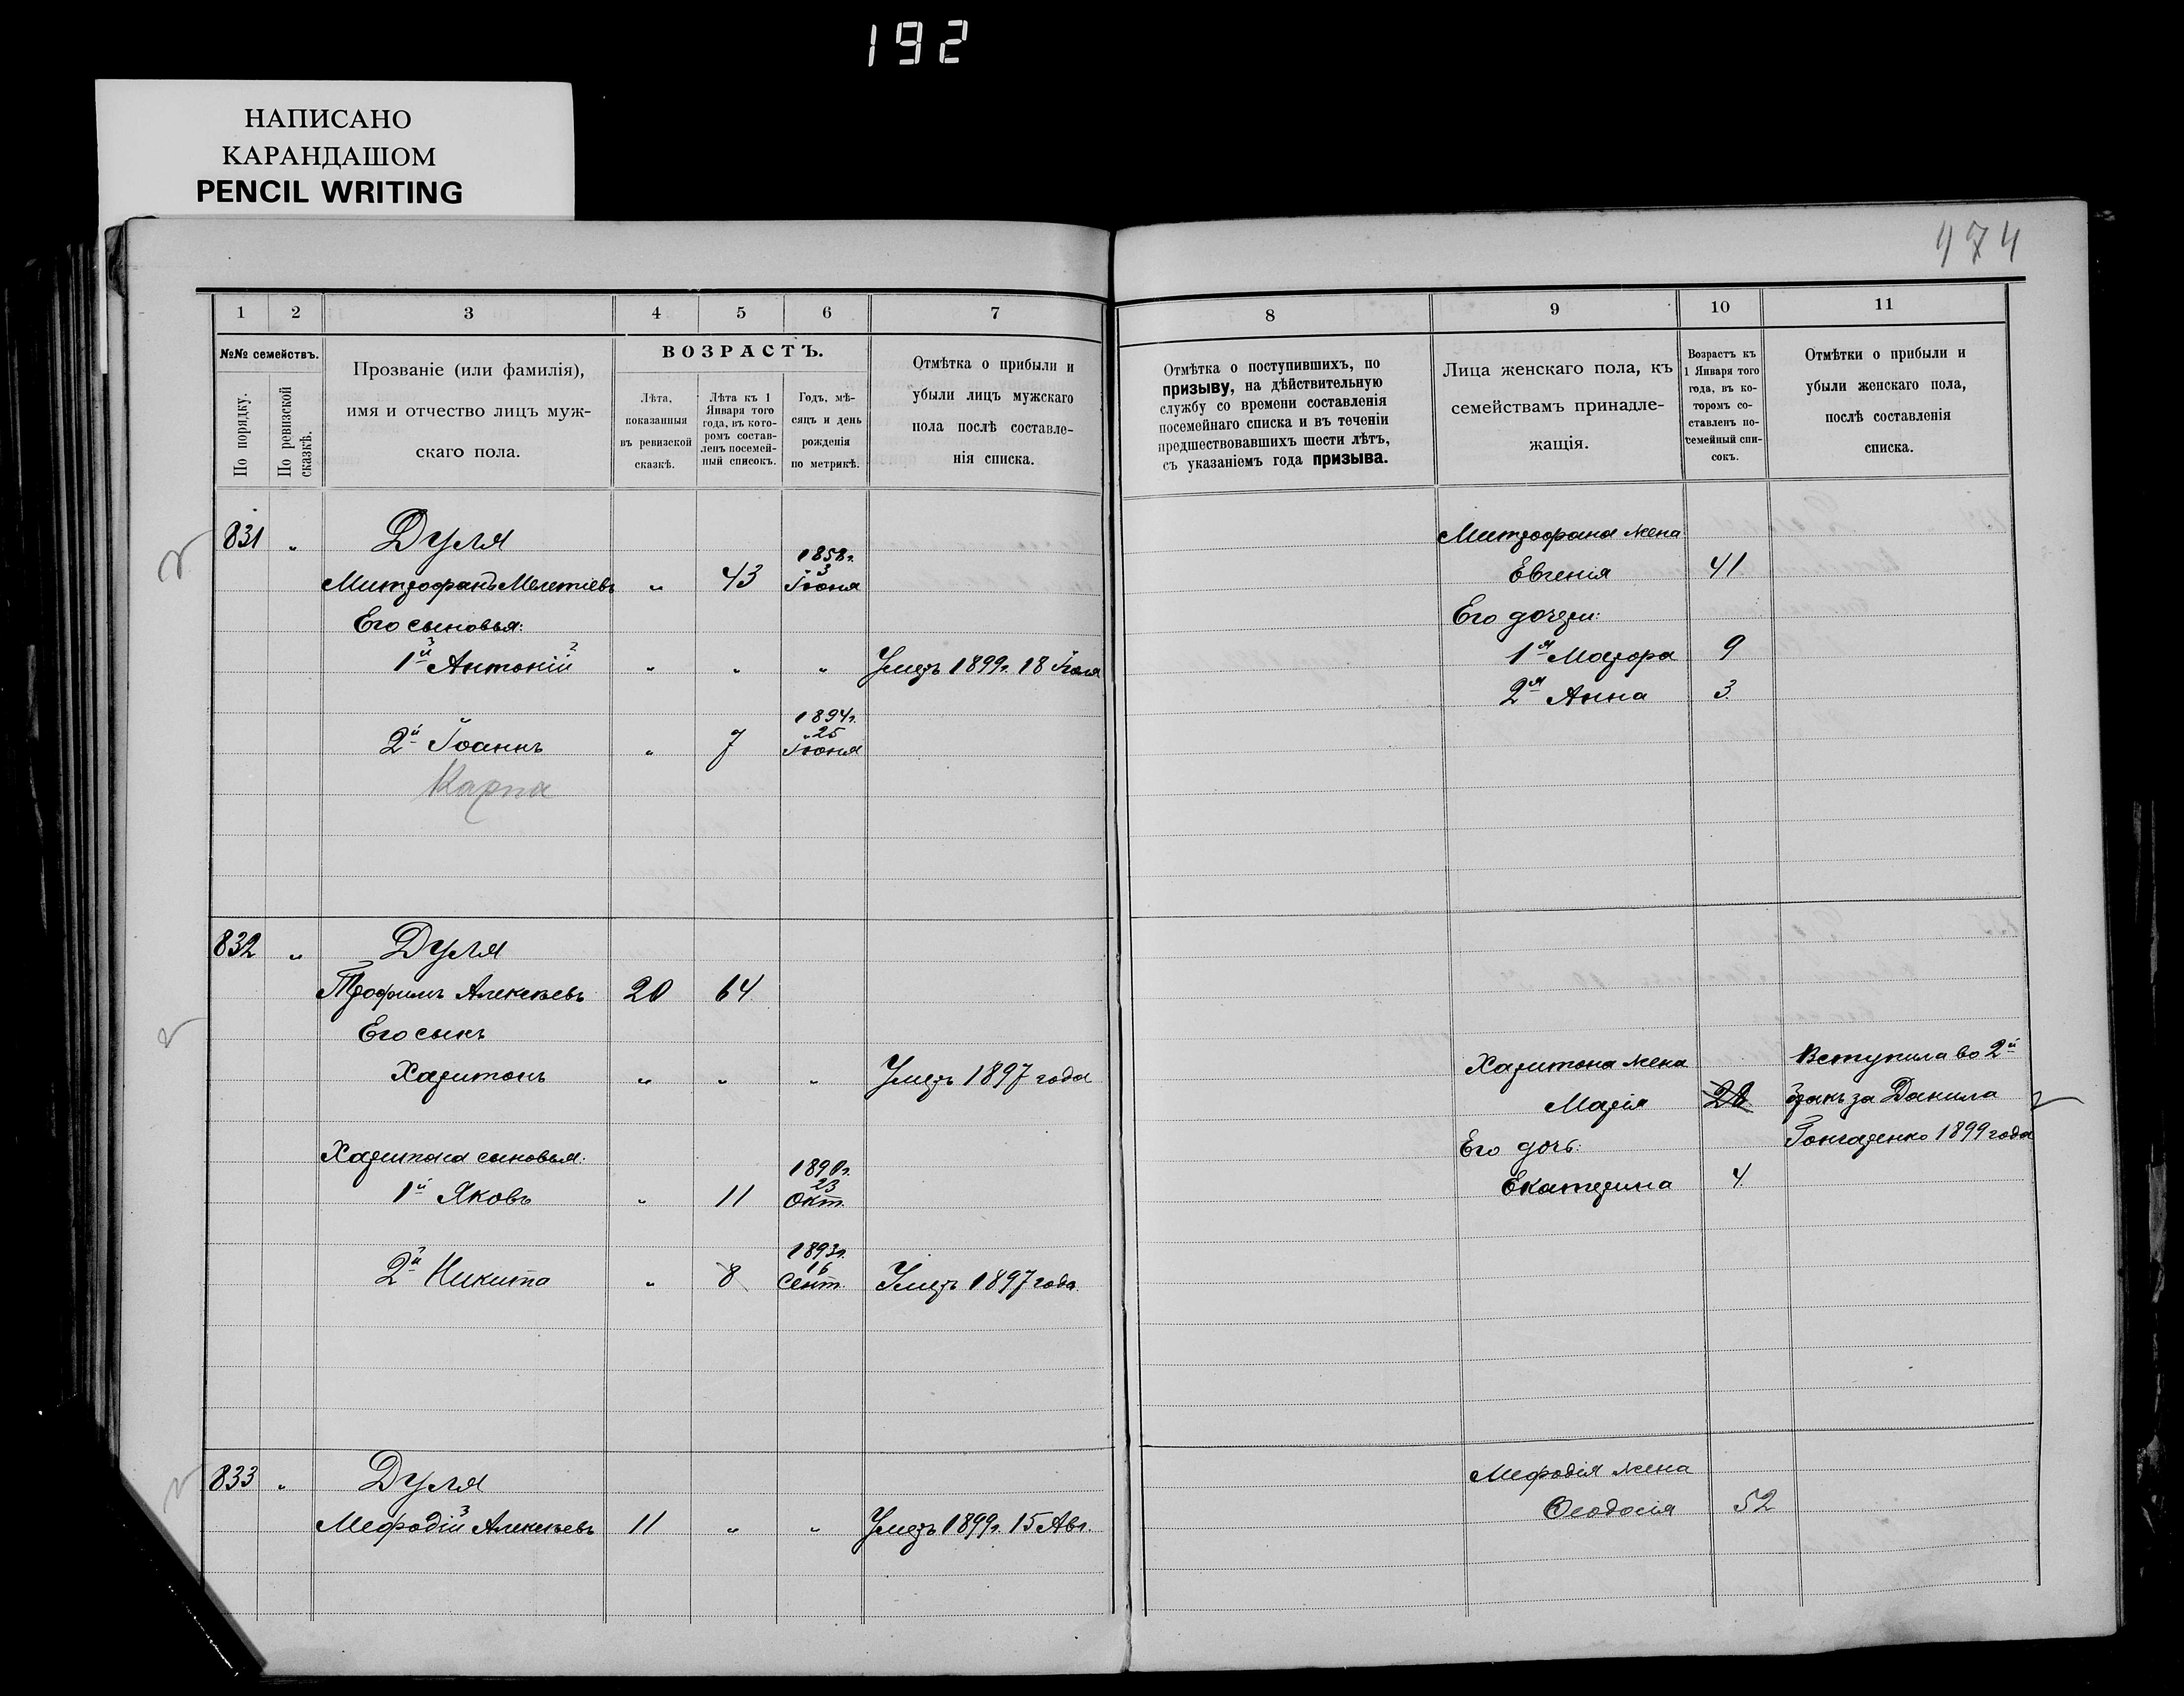 192
НАПИСАНО
КАРАНДАШОМ
PENCIL WRITING
474
1 2 3 4 5 6 7
№№ семействъ.
По порядку.
По ревизской сказкѣ.
Прозваніе (или фамилія),
имя и отчество лицъ муж-
скаго пола.
ВОЗРАСТЪ.
Лѣта,
показанныя
въ ревизской
сказкѣ.
Лѣта къ 1
Января того
года, въ кото-
ромъ состав-
ленъ посемей-
ный списокъ.
Годъ, мѣ-
сяцъ и день
рожденія
по метрикѣ.
Отмѣтка о прибыли и
убыли лицъ мужскаго
пола послѣ составле-
нія списка.
831 " Дуля
1858г.
Митрофанъ Мелетіевъ " 43 3 Іюня
Его сыновья:
1й Антоній " " " Умеръ 1899г. 18 Іюля
1894г.
2й Іоаннъ " 7 25 Іюня
Карпа
832 " Дуля
Трофимъ Алексѣевъ 20 64
Его сынъ
Харитонъ " " " Умеръ 1897 года
Харитона сыновья:
1890г.
1й Яковъ " 11 23 Окт.
1893г.
2й Никита " 8 16 Сент. Умеръ 1897 года.
833 " Дуля
Мефодій Алексѣевъ 11 " " Умеръ 1899г. 15 Авг.
8 9 10 11
Отмѣтка о поступившихъ, по
призыву, на дѣйствительную
службу со времени составленія
посемейнаго списка и въ теченіи
предшествовавшихъ шести лѣтъ,
съ указаніемъ года призыва.
Лица женскаго пола, къ
семействамъ принадле-
жащія.
Возрастъ къ
1 Января того
года, въ ко-
торомъ со-
ставленъ по-
семейный спи-
сокъ.
Отмѣтки о прибыли и
убыли женскаго пола,
послѣ составленія
списка.
Митрофана жена
Евгенія 41
Его дочери:
1я Мавра 9
2я Анна 3.
Харитона жена Вступила во 2й
Марія 28 бракъ за Данила
Его дочь: Гончаренко 1899 года
Екатерина 4.
Мефодія жена
Ѳеодосія 52